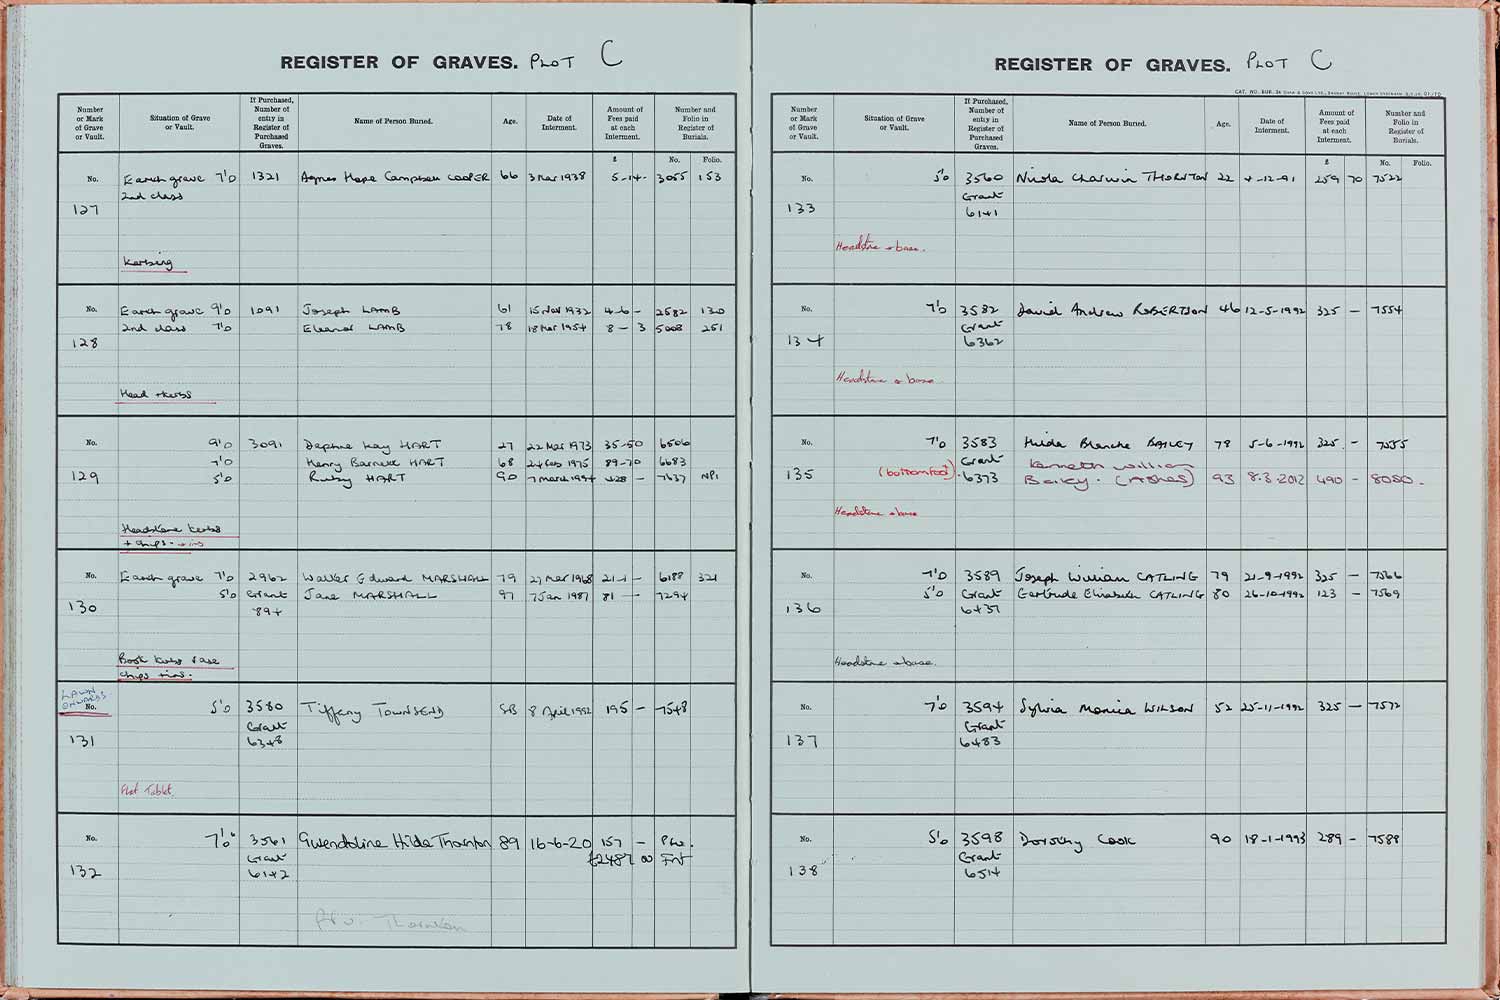 REGISTER OF GRAVES. PLOT C
Number or Mark of Grave or Vault. Situation of Grave or Vault. If Purchased, Number of entry in Register of Purchased Graves. Name of Person Buried. Age. Date of Interment. Amount of Fees paid at each Interment. Number and Folio in Register of Burials.
£ No. Folio.
No. Earth grave 7'0 1321 Agnes Hope Campbell COOPER 66 3 Mar 1938 5-14- 3055 153
2nd class
127
Kerbing
No. Earth grave 9'0 1091 Joseph LAMB 61 15 Nov 1932 4-6- 2582 130
2nd class 7'0 Eleanor LAMB 78 18 Mar 1954 8-3 5008 251
128
Head + kerbs
No. 9'0 3091 Daphne Kay HART 27 22 Mar 1973 35-50 6506
7'0 Henry Barnett HART 68 24 Feb 1975 89-70 6683
129 5'0 Ruby HART 90 7 March 1994 428 - 7637 NP1
Headstone kerbs
+ chips + ins
No. Earth grave 7'0 2962 Walter Edward MARSHALL 79 27 Mar 1968 21-1- 6188 321
5'0 Grant Jane MARSHALL 97 7 Jan 1987 81 - 7294
130 894
Book kerbs vase
chips + ins.
LAWN
ONWARDS
No. 5'0 3580 Tiffany TOWNSEND SB 8 April 1992 195 - 7548
Grant
131 6348
Flat Tablet.
No. 7'0" 3561 Gwendoline Hilda Thornton 89 16-6-20 157 -
Grant £2487 00
132 6142
Thornton
REGISTER OF GRAVES. PLOT C
Number or Mark of Grave or Vault. Situation of Grave or Vault. If Purchased, Number of entry in Register of Purchased Graves. Name of Person Buried. Age. Date of Interment. Amount of Fees paid at each Interment. Number and Folio in Register of Burials.
£ No. Folio.
No. 5'0 3560 Nicola Charwin THORNTON 22 4-12-91 259 70 7522
Grant
133 6141
Headstone + base.
No. 7'0 3582 David Andrew ROBERTSON 46 12-5-1992 325 - 7554
Grant
134 6362
Headstone + base
No. 7'0 3583 Hilda Blanche BAILEY 78 5-6-1992 325 - 7555
Grant Kenneth William
135 (bottom foot) 6373 Bailey. (Ashes) 93 8.3.2012 490 - 8080.
Headstone + base
No. 7'0 3589 Joseph William CATLING 79 21-9-1992 325 - 7566
5'0 Grant Gertrude Elizabeth CATLING 80 26-10-1992 123 - 7569
136 6437
Headstone + base.
No. 7'0 3594 Sylvia Monica WILSON 52 25-11-1992 325 - 7572
Grant
137 6483
No. 5'0 3598 Dorothy Cook 90 18-1-1993 289 - 7588
Grant
138 6514